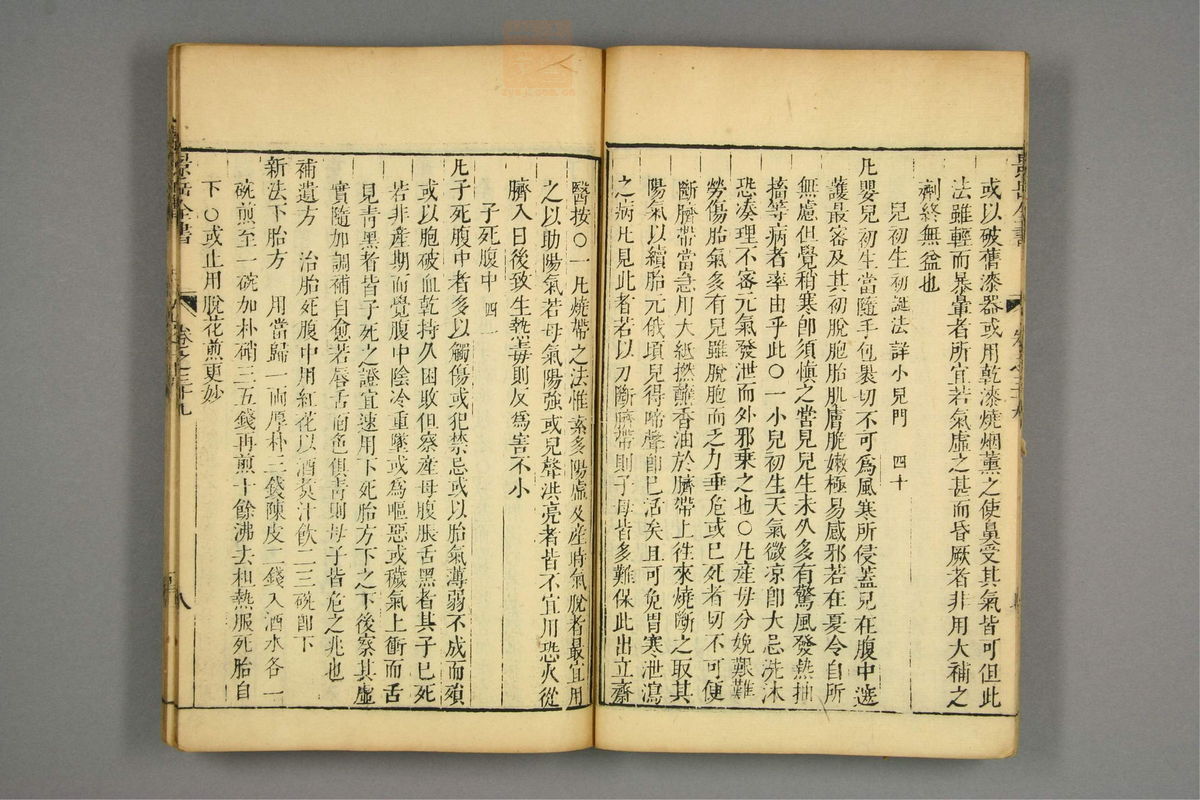 或以破舊漆器或用乾漆燒烟薰之使鼻受其氣皆可但此
法雖輕而暴暈者所宜若氣虛之甚而昏厥者非用大補之
劑終無益也
兒初生初誕法詳小兒門 四十
凡嬰兒初生當隨手包裹切不可爲風寒所侵蓋兒在腹中遮
護最密及其初脫胞胎肌膚脆嫩極易感邪若在夏令自所
無慮但覺稍寒卽須愼之嘗見兒生未久多有驚風發熱抽
搐等病者率由乎此○一小兒初生天氣微凉卽大忌洗沐
恐湊理不密元氣發泄而外邪乘之也○凡産母分娩艱難
勞傷胎氣多有兒雖脫胞而乏力垂危或已死者切不可便
斷臍帶當急用大紙撚蘸香油於臍帶上徃來燒斷之取其
陽氣以續胎元俄頃兒得啼聲卽已活矣且可免胃寒泄瀉
之病凡見此者若以刀斷臍帶則子母皆多難保此出立齋
醫按○一凡燒帶之法惟素多陽虛及産時氣脫者最宜用
之以助陽氣若母氣陽強或兒聲洪亮者皆不宜用恐火從
臍入日後致生熱毒則反爲害不小
子死腹中 四一
凡子死腹中者多以觸傷或犯禁忌或以胎氣薄弱不成而殞
或以胞破血乾持久困敗但察産母腹脹舌黑者其子已死
若非産期而覺腹中陰冷重墜或爲嘔惡或穢氣上衝而舌
見青黑者皆子死之證宜速用下死胎方下之下後察其虛
實隨加調補自愈若唇舌面色俱靑則母子皆危之兆也
補遺方 治胎死腹中用紅花以酒煑汁飲二三碗卽下
新法下胎方 用當歸一兩厚朴三錢陳皮二錢入酒水各一
碗煎至一碗加朴硝三五錢再煎十餘沸去柤熱服死胎自
下○或止用脫花煎更妙
景岳全書
卷之三十九
八